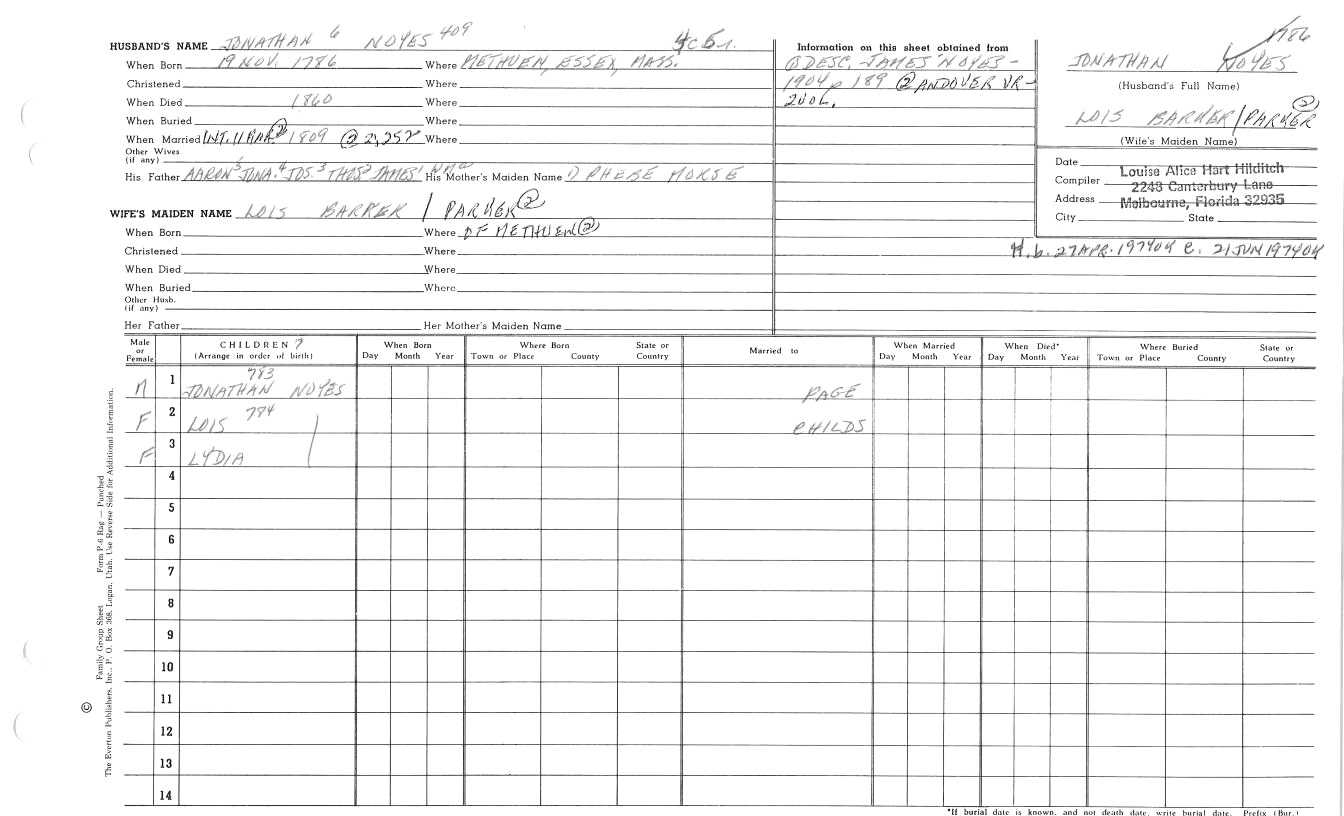 HUSBAND'S NAME JONATHAN 6 NOYES 409
When Born 19 NOV. 1786 Where METHUEN, ESSEX, MASS.
Christened Where
When Died 1860 Where
When Buried Where
When Married INT. 11 MAR. ② 1809 ② 2, 252 Where
Other Wives
(if any)
His Father AARON 5 JONA. 4 JOS. 3 THOS 2 JAMES 1 His Mother's Maiden Name PHEBE MORSE
WIFE'S MAIDEN NAME LOIS BARKER / PARKER ②
When Born Where OF METHUEN ②
Christened Where
When Died Where
When Buried Where
Other Husb.
(if any)
Her Father Her Mother's Maiden Name
Information on this sheet obtained from
① DESC. JAMES NOYES -
1904 p 189 ② ANDOVER VR -
2 vol.
1786
JONATHAN NOYES
(Husband's Full Name)
②
LOIS BARKER / PARKER
(Wife's Maiden Name)
Date
Compiler Louise Alice Hart Hilditch
Address 2243 Canterbury Lane
Melbourne, Florida 32935
City State
H. b. 27 APR. 1974 e. 21 JUN 1974
Male or Female
CHILDREN 7
(Arrange in order of birth)
When Born
Day Month Year
Where Born
Town or Place County State or Country
Married to
When Married
Day Month Year
When Died*
Day Month Year
Where Buried
Town or Place County State or Country
783
M 1 JONATHAN NOYES PAGE
F 2 LOIS 784 CHILDS
F 3 LYDIA
4
5
6
7
8
9
10
11
12
13
14
*If burial date is known, and not death date, write burial date. Prefix (Bur.)
© Family Group Sheet Form P-6 Rag — Punched
The Everton Publishers, Inc., P. O. Box 368, Logan, Utah. Use Reverse Side for Additional Information.